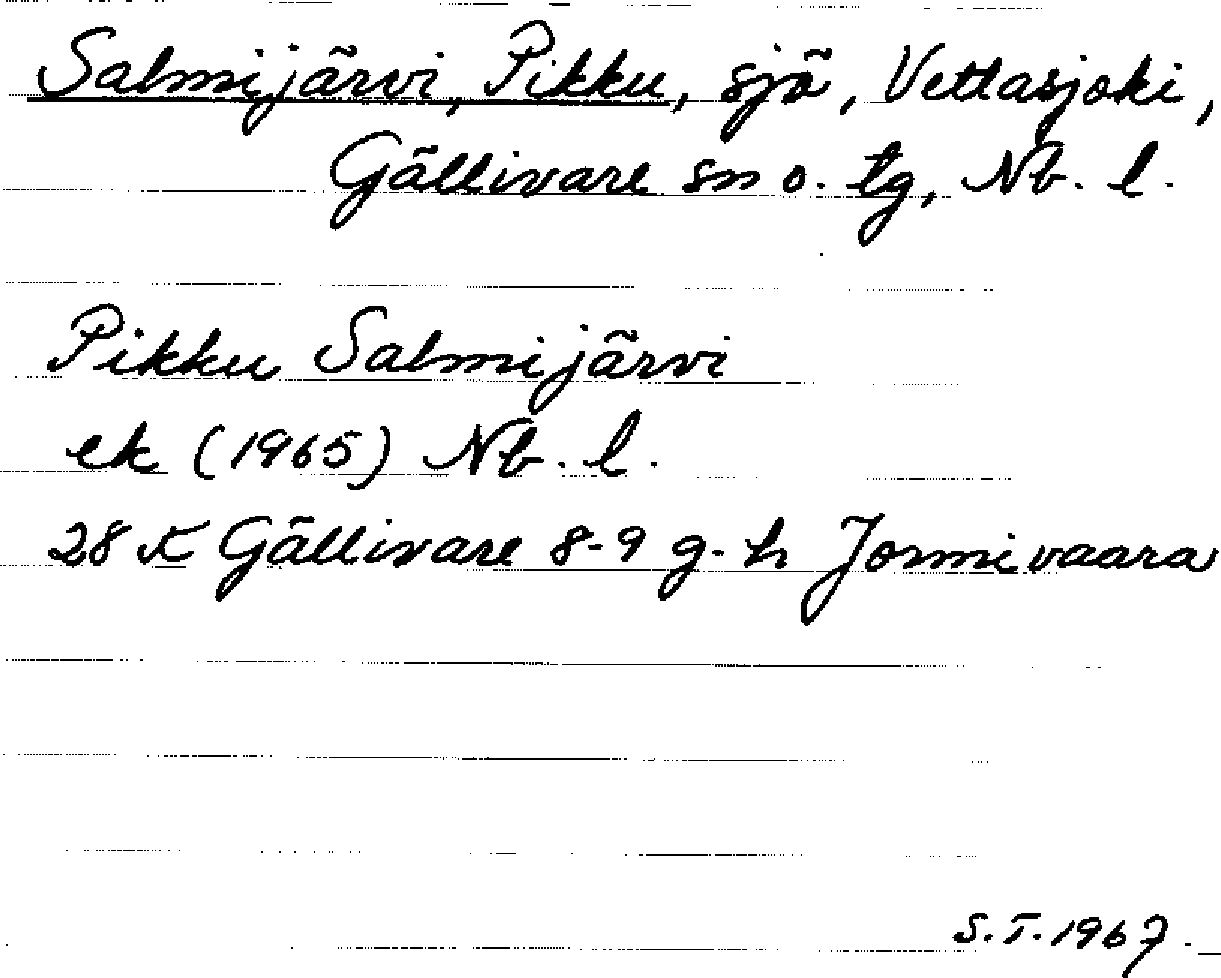 Salmijärvi, Pikku, sjö, Vettasjoki,
Gällivare sn o. tg, Nb. l.
Pikku Salmijärvi
ek (1965) Nb. l.
28 K Gällivare 8-9 g-h Jormivaara
S.T. 1967.